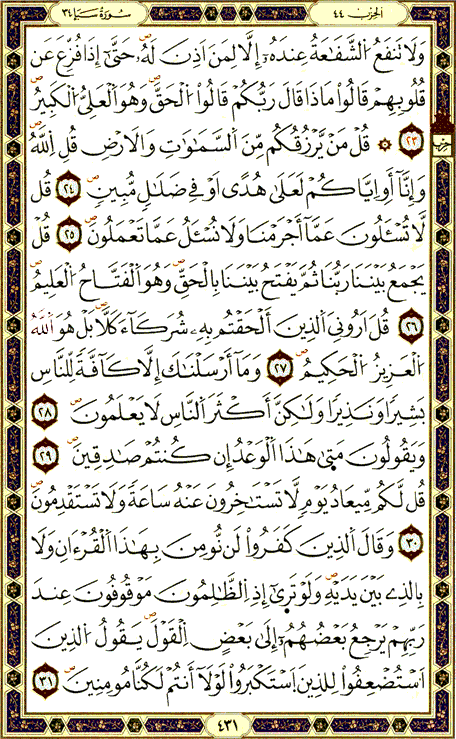 الحزب ٤٤
سورة سبإ ٣٤
وَلَا تَنفَعُ اُلشَّفَٰعَةُ عِندَهُۥٓ إِلَّا لِمَنْ أَذِنَ لَهُۥ حَتَّىٰٓ إِذَا فُزِّعَ عَن
قُلُوبِهِمْ قَالُواْ مَاذَا قَالَ رَبُّكُمْ قَالُواْ اُلْحَقَّ وَهُوَ اَلْعَلِيُّ اُلْكَبِيرُ
٢٣ ۞ قُلْ مَنْ يَّرْزُقُكُم مِّنَ اَلسَّمَٰوَٰتِ وَالَارْضِ قُلِ اِللَّهُ
وَإِنَّآ أَوِ اِيَّاكُمْ لَعَلَىٰ هُدًى اَوْ فِي ضَلَٰلٍ مُّبِينٍ ٢٤ قُل
لَّا تُسْـَٔلُونَ عَمَّآ أَجْرَمْنَا وَلَا نُسْـَٔلُ عَمَّا تَعْمَلُونَ ٢٥ قُلْ
يَجْمَعُ بَيْنَنَا رَبُّنَا ثُمَّ يَفْتَحُ بَيْنَنَا بِالْحَقِّ وَهُوَ اَلْفَتَّاحُ اُلْعَلِيمُ
٢٦ قُلَ اَرُونِيَ اَلذِينَ أَلْحَقْتُم بِهِۦ شُرَكَآءَ كَلَّا بَلْ هُوَ اَللَّهُ
اُلْعَزِيزُ اُلْحَكِيمُ ٢٧ وَمَآ أَرْسَلْنَٰكَ إِلَّا كَآفَّةً لِّلنَّاسِ
بَشِيرًا وَنَذِيرًا وَلَٰكِنَّ أَكْثَرَ اَلنَّاسِ لَا يَعْلَمُونَ ٢٨
وَيَقُولُونَ مَتَىٰ هَٰذَا اَلْوَعْدُ إِن كُنتُمْ صَٰدِقِينَ ٢٩
قُل لَّكُم مِّيعَادُ يَوْمٍ لَّا تَسْتَـٰٔخِرُونَ عَنْهُ سَاعَةً وَلَا تَسْتَقْدِمُونَ
٣٠ وَقَالَ اَلذِينَ كَفَرُواْ لَن نُّومِنَ بِهَٰذَا اَلْقُرْءَانِ وَلَا
بِالذِي بَيْنَ يَدَيْهِ وَلَوْ تَرَىٰٓ إِذِ اِلظَّٰلِمُونَ مَوْقُوفُونَ عِندَ
رَبِّهِمْ يَرْجِعُ بَعْضُهُمُۥٓ إِلَىٰ بَعْضٍ اِلْقَوْلَ يَقُولُ اُلذِينَ
اَسْتُضْعِفُواْ لِلذِينَ اَسْتَكْبَرُواْ لَوْلَآ أَنتُمْ لَكُنَّا مُومِنِينَ ٣١
حزب
٤٣١